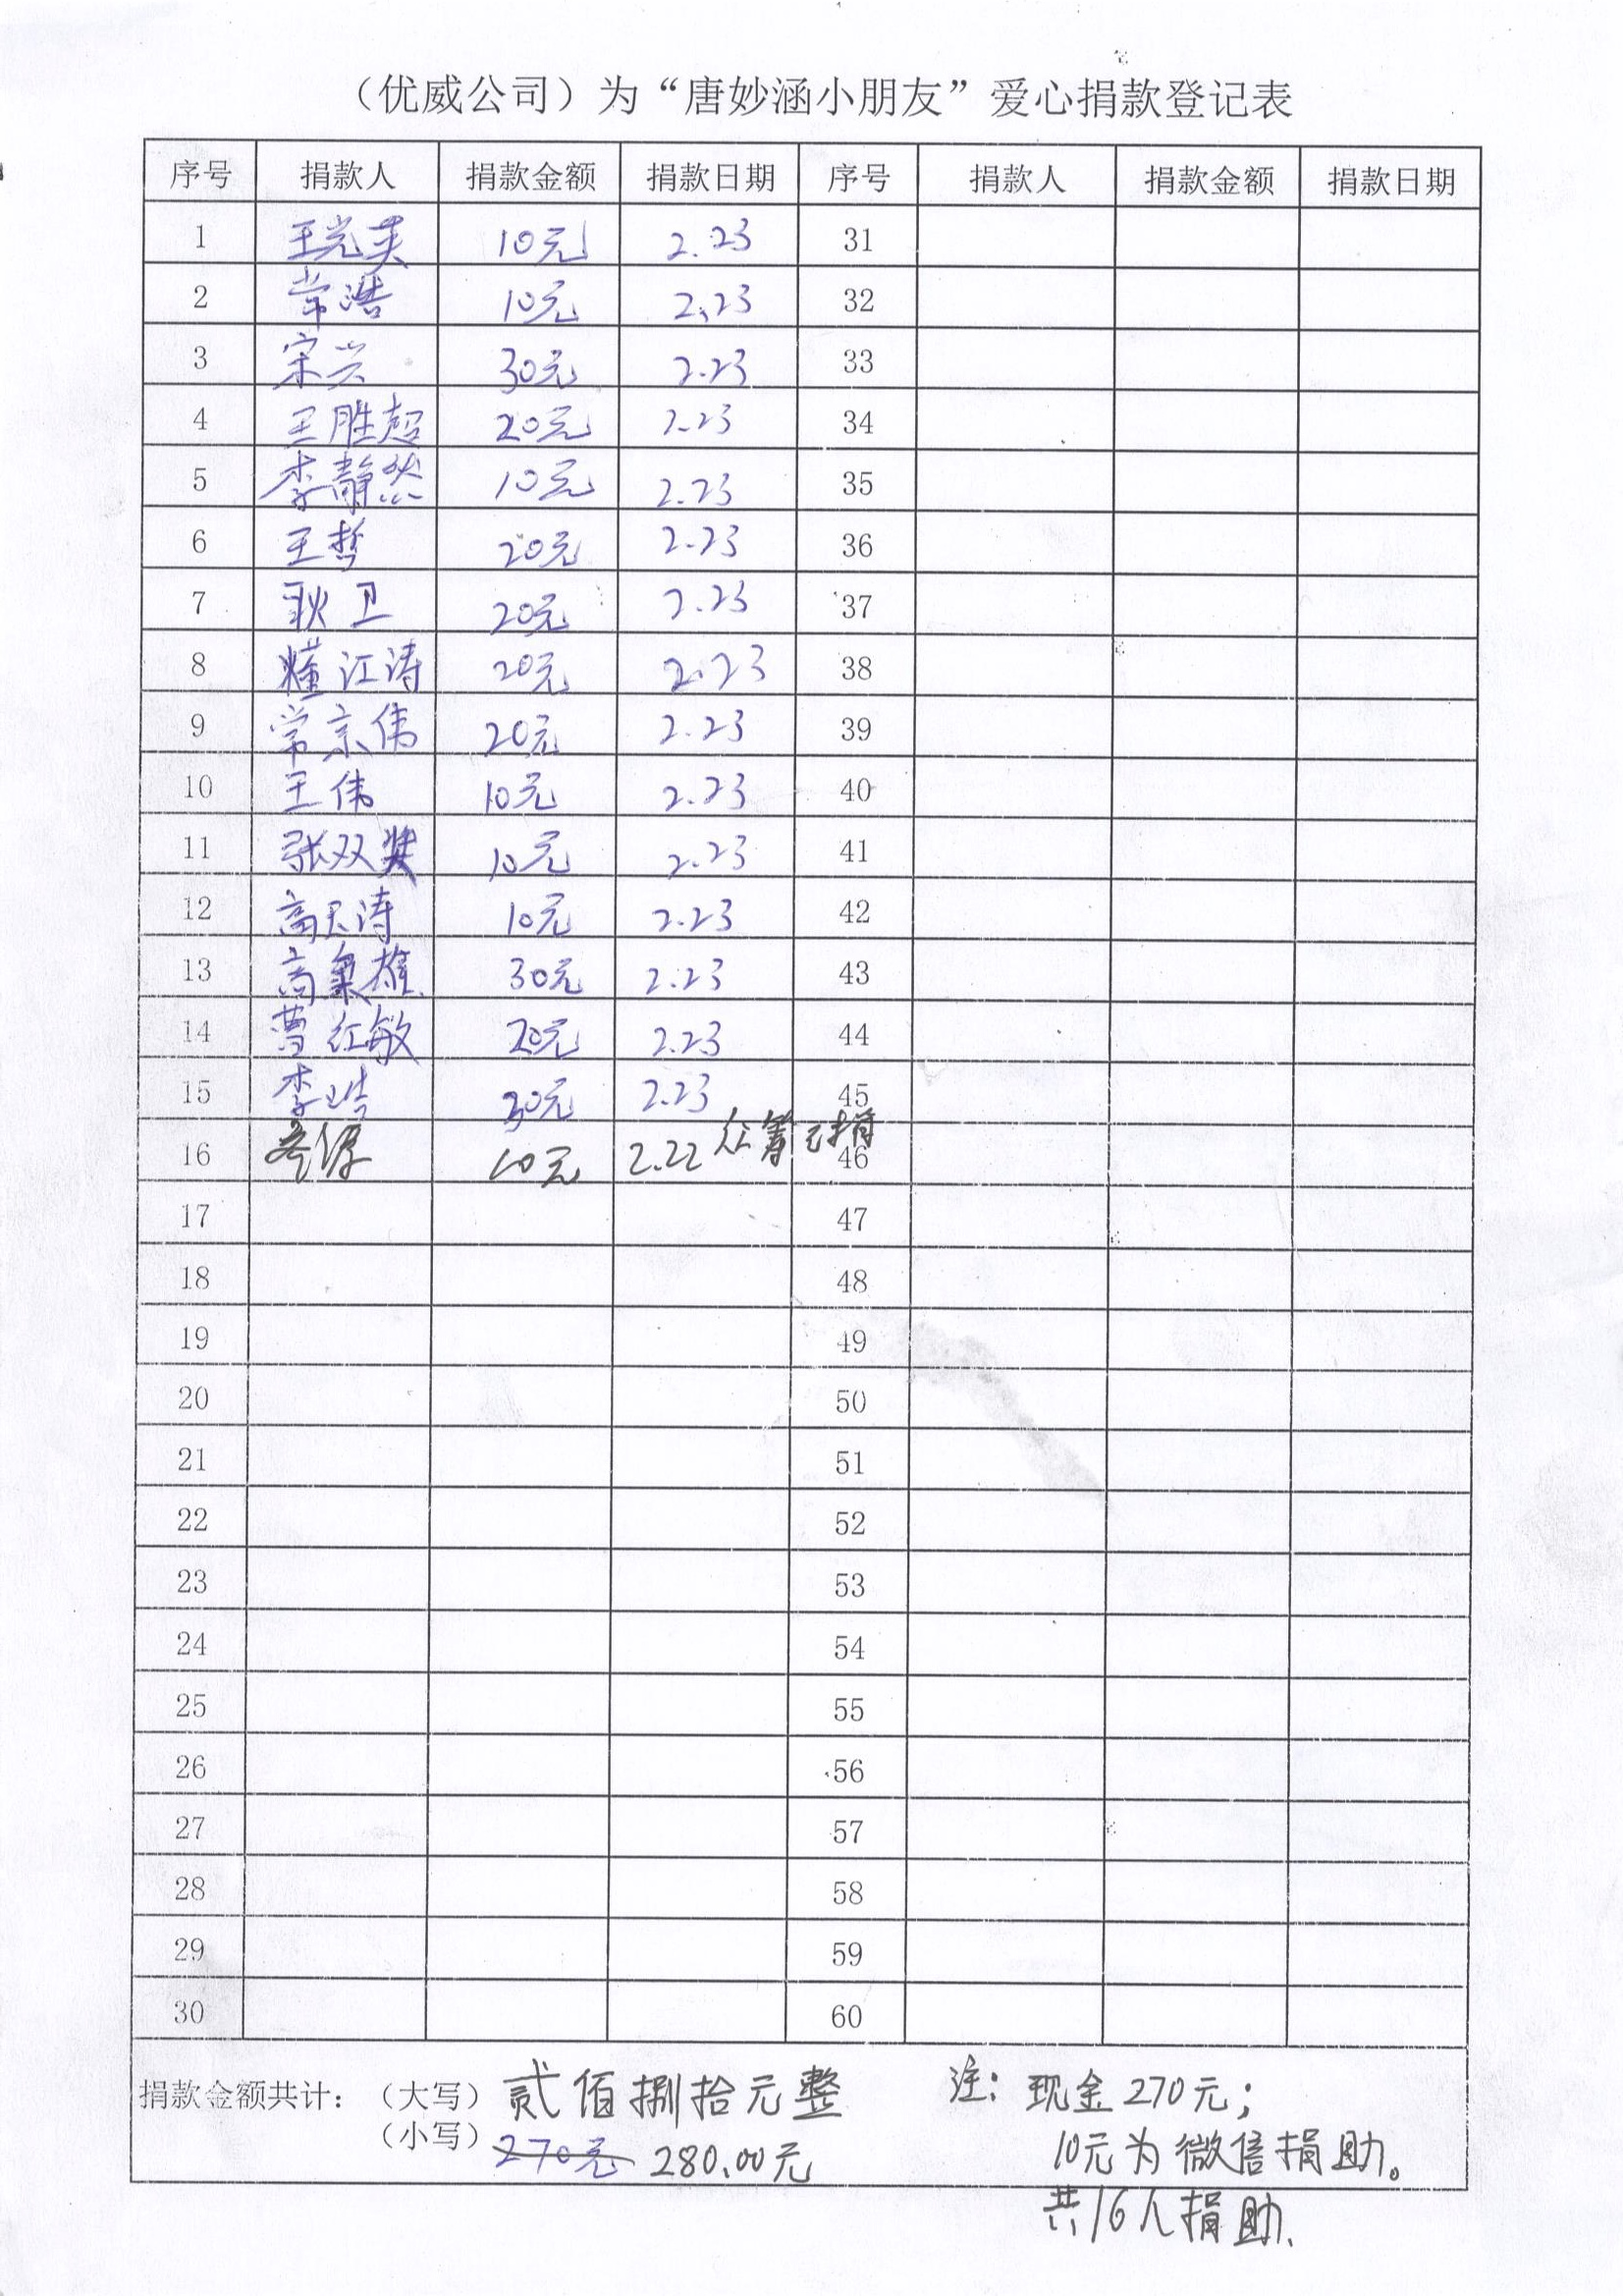 （优威公司）为“唐妙涵小朋友”爱心捐款登记表
序号 捐款人 捐款金额 捐款日期 序号 捐款人 捐款金额 捐款日期
1 王光英 10元 2.23 31
2 常浩 10元 2.23 32
3 宋兴 30元 2.23 33
4 王胜超 20元 2.23 34
5 李静然 10元 2.23 35
6 王哲 20元 2.23 36
7 耿卫 20元 2.23 37
8 江涛 20元 2.23 38
9 常宗伟 20元 2.23 39
10 王伟 10元 2.23 40
11 张双 10元 2.23 41
12 高天涛 10元 2.23 42
13 高雄 30元 2.23 43
14 曹红敏 20元 2.23 44
15 李 30元 2.23 45
16 10元 2.22 众筹已捐 46
17 47
18 48
19 49
20 50
21 51
22 52
23 53
24 54
25 55
26 56
27 57
28 58
29 59
30 60
捐款金额共计：（大写）贰佰捌拾元整 注：现金270元；
（小写）270元 280.00元 10元为微信捐助。
共16人捐助.